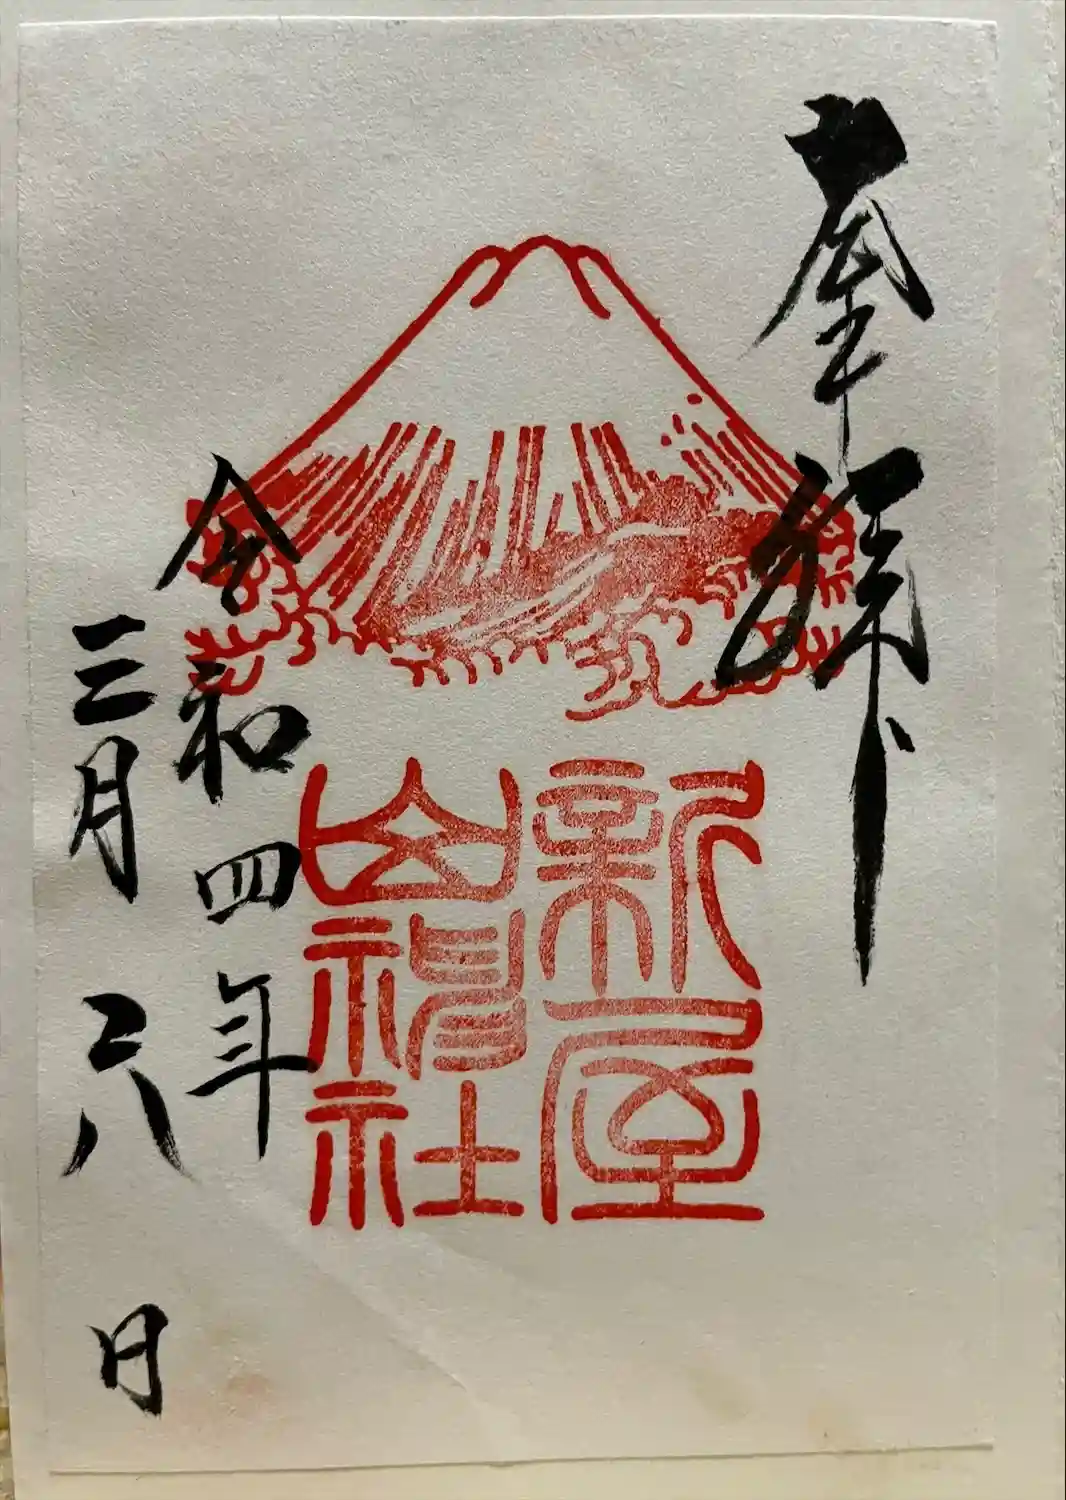 奉拝
新屋
山神社
令和四年
三月六日